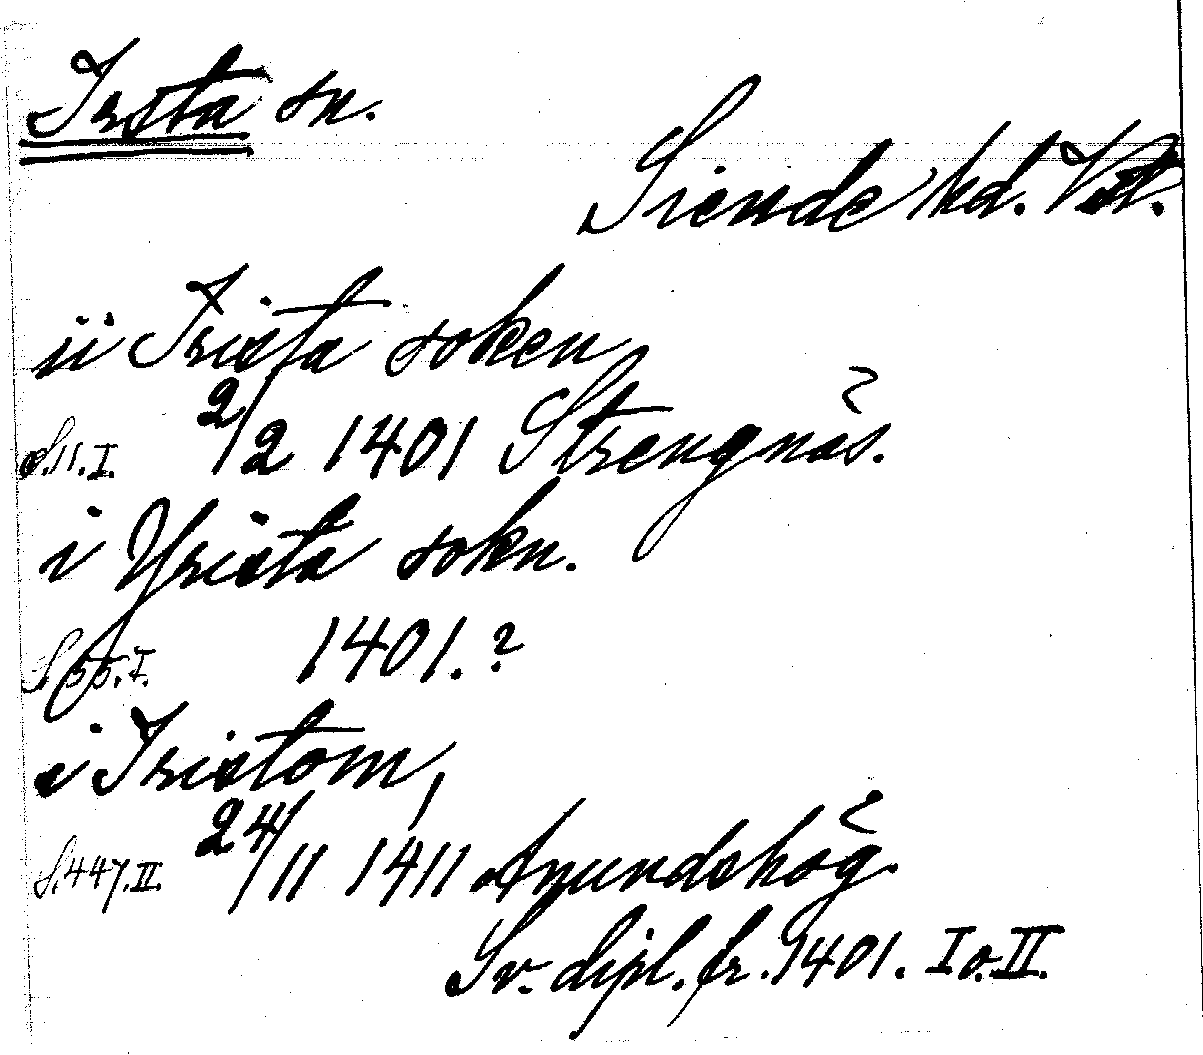 Irsta sn.
Siende hd. Vstl.
ii Irista soken
S.11.I. 2/2 1401 Strengnäs.
i Yrista sokn.
S. 55.I. 1401.?
i Iristom,
S.447.II. 24/11 1411 Anundshög.
Sv. dipl. fr. 1401. I o. II.